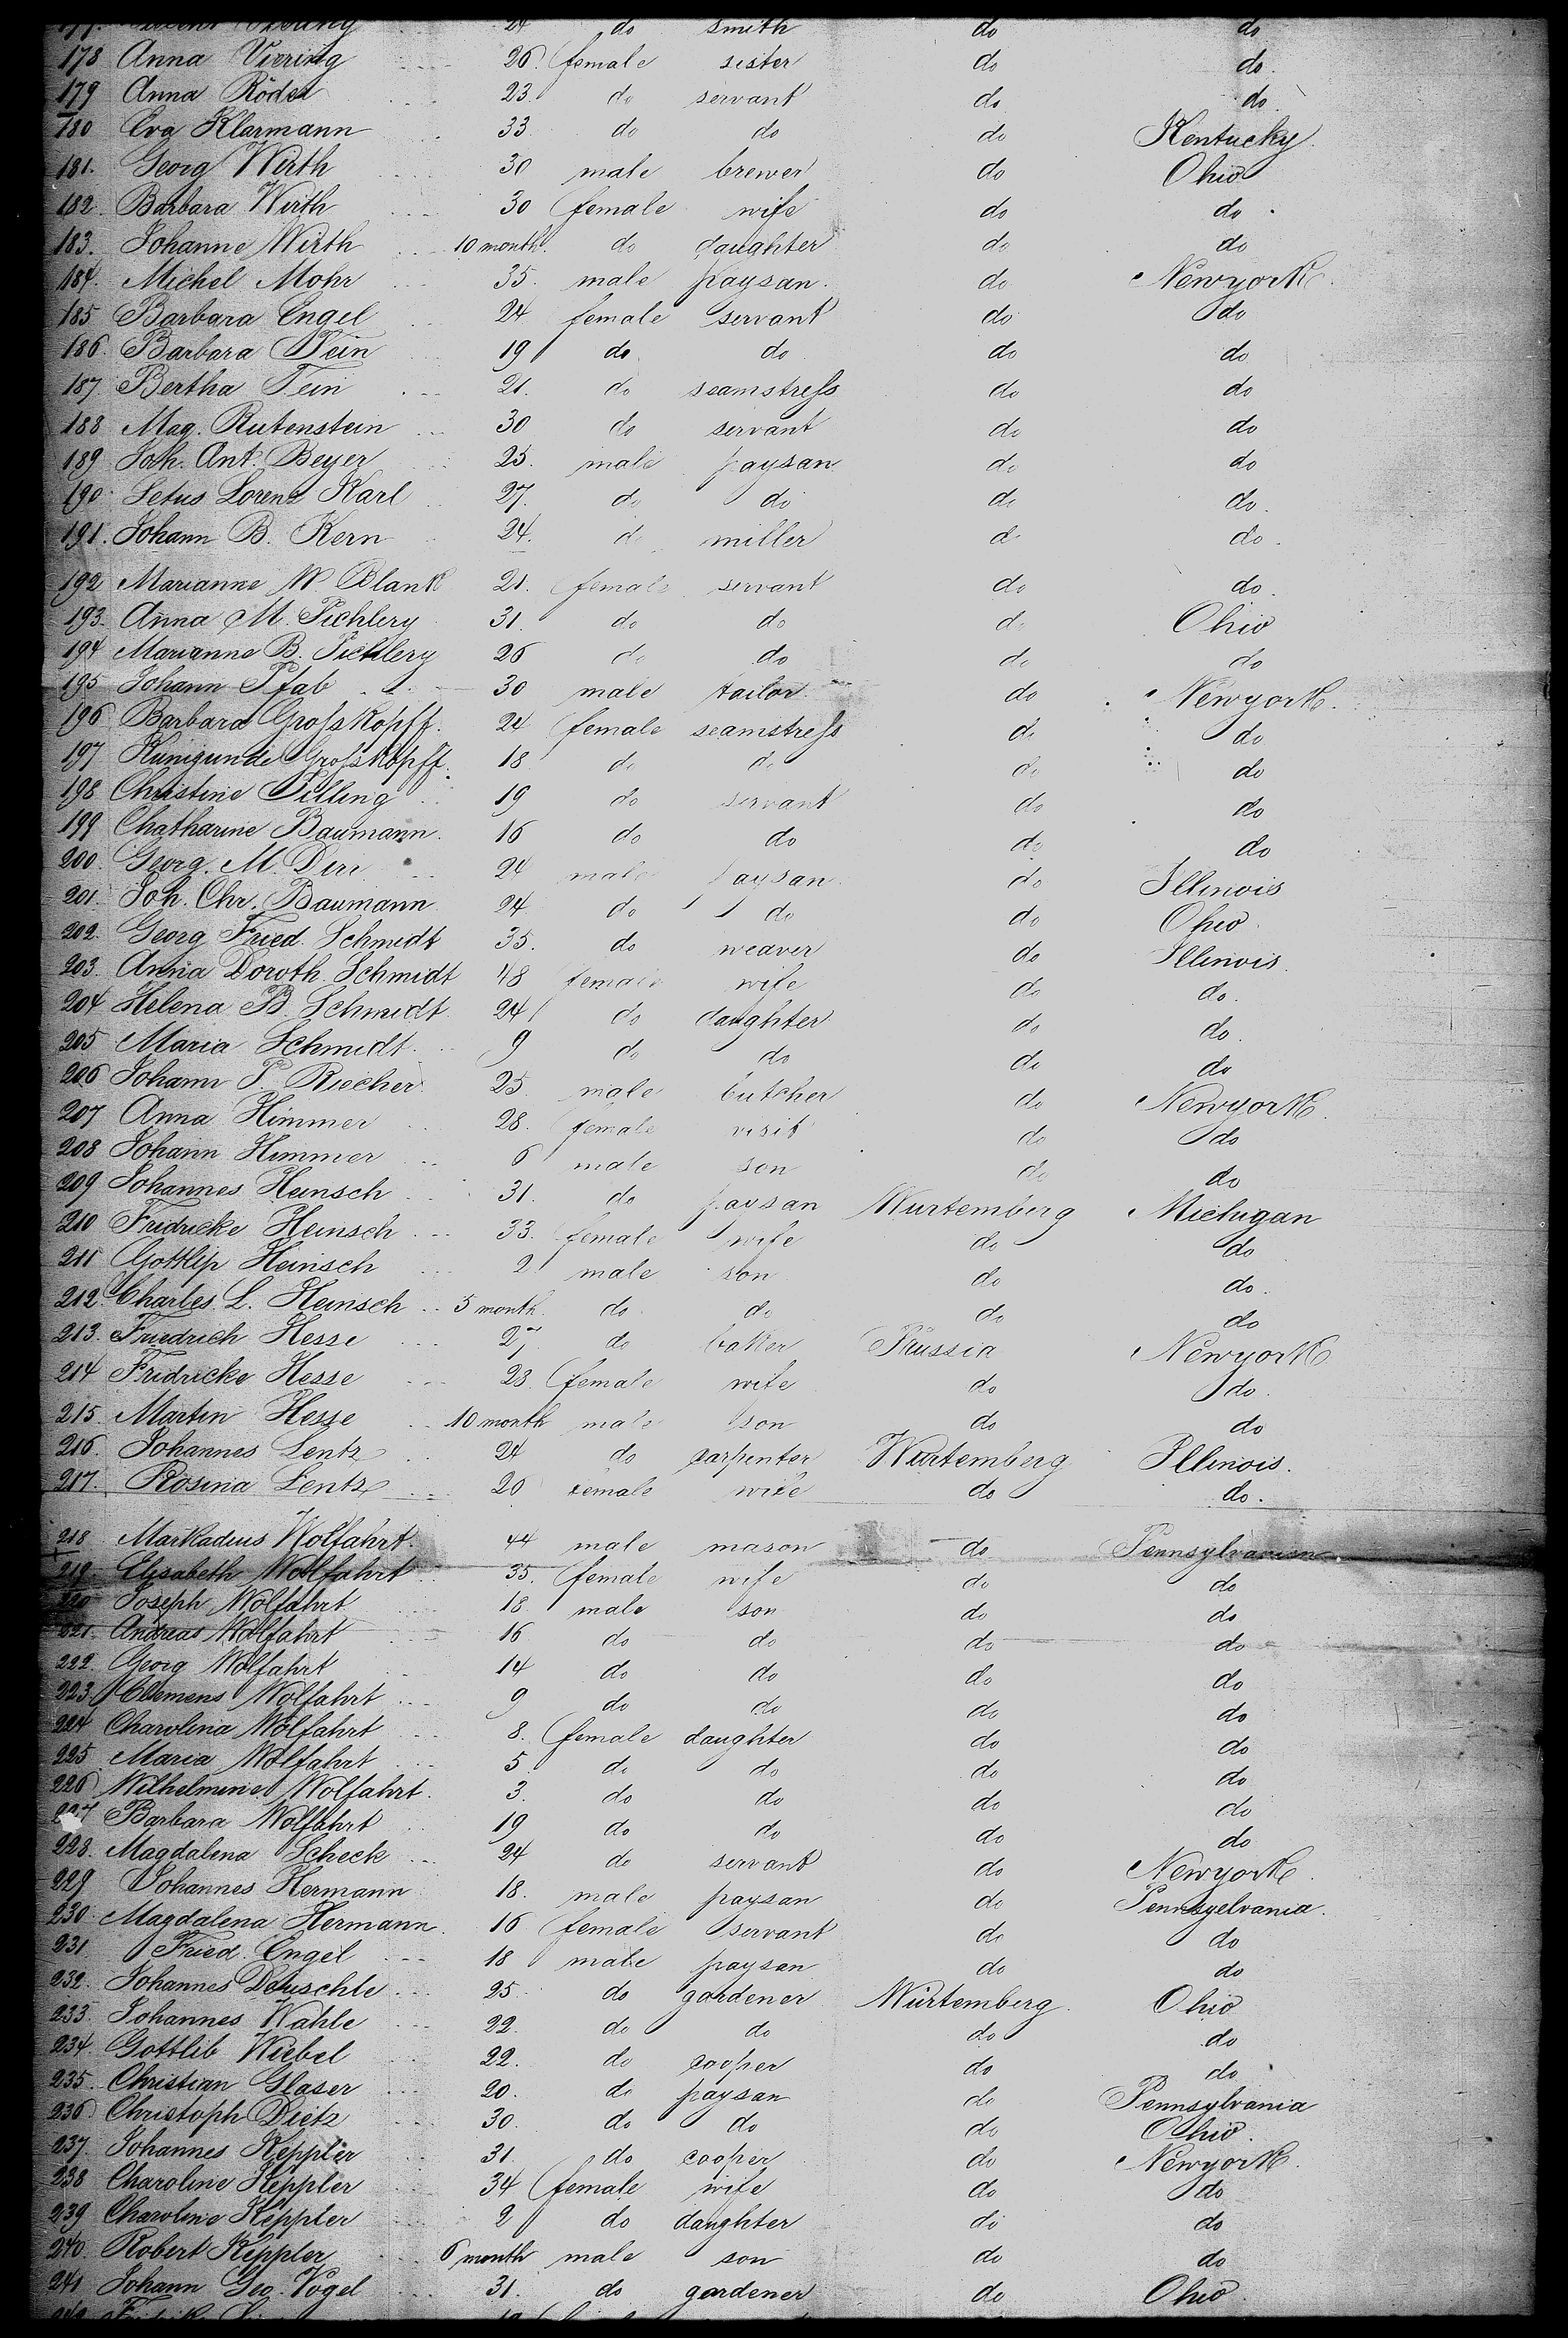 24 do smith do do
178 Anna Viering 26. female sister do do.
179 Anna Röder 23. do servant do do
180 Eva Klarmann 33. do do do Kentucky.
181. Georg Wirth 30 male brewer do Ohio
182. Barbara Wirth 30 female wife do do
183. Johanne Wirth 10 month. do daughter do do
184. Michel Mohr 35. male paysan. do Newyork.
185 Barbara Engel 24 female servant do do
186. Barbara Tein 19 do do do do
187. Bertha Tein 21. do seamstress do do
188 Mag. Rutenstein 30 do servant do do
189 Joh. Ant. Beyer 25. male paysan do do
190. Setus Lorenz Karl 27. do do do do.
191. Johann B. Kern 24. do miller do do.
192 Marianne W. Blank 21. female servant do do.
193. Anna M. Pichlery 31. do do do Ohio
194 Marianne B. Pichlery 26 do do do do
195 Johann Pfab 30 male tailor do Newyork.
196 Barbara Grosskopff. 24 female seamstress do do
197 Kunigunde Grosskopff. 18 do do do do
198 Christine Pilling 19 do servant do do
199 Chatharine Baumann. 16 do do do do
200. Georg. M. Dirr 24 male paysan. do Illinois
201. Joh. Chr. Baumann 24 do do do Ohio
202. Georg Fried. Schmidt 35. do weaver do Illinois.
203. Anna Doroth. Schmidt 48 female wife do do.
204 Helena B. Schmidt 24 do daughter do do.
205 Maria Schmidt. 9 do do do do
206 Johann P. Riecher. 25 male butcher do Newyork.
207 Anna Himmer 28. female visit do do
208 Johann Himmer 6 male son do do
209 Johannes Heinsch 31. do paysan Wurtemberg Michigan
210 Fridricke Heinsch 33. female wife do do
211 Gottlip Heinsch 2 male son do do.
212. Charles L. Heinsch 5 month do do do do
213. Friedrich Hesse 27 do baker Prussia Newyork
214 Fridricke Hesse 23. female wife do do.
215. Martin Hesse 10 month male son do do
216. Johannes Lentz 24 do carpenter Wurtemberg Illinois.
217. Rosina Lentz 20 female wife do do.
218 Markadeus Wolfahrt. 44 male mason do Pennsylvanien
219 Elisabeth Wolfahrt 35. female wife do do
220 Joseph Wolfahrt 18 male son do do
221. Andreas Wolfahrt 16 do do do do
222. Georg Wolfahrt 14 do do do do
223. Clemens Wolfahrt 9 do do do do
224 Charolina Wolfahrt 8. female daughter do do
225. Maria Wolfahrt 5 do do do do
226 Wilhelmine Wolfahrt. 3. do do do do
227 Barbara Wolfahrt 19 do do do do
228. Magdalena Scheck 24 do servant do Newyork.
229 Johannes Hermann 18. male paysan do Pennsyelvania.
230 Magdalena Hermann 16 female servant do do
231 Fried. Engel 18 male paysan do do
232. Johannes Deuschle 25. do gardener Würtemberg. Ohio
233. Johannes Wahle 22. do do do do
234 Gottlib Wiebel 22. do cooper do do
235. Christian Glaser 20. do paysan do Pennsylvania
236. Christoph Dietz 30. do do do Ohio.
237. Johannes Keppler 31. do cooper do Newyork.
238 Charoline Keppler 34 female wife do do
239 Charoline Keppler 2 do daughter do do
240. Robert Keppler 6 month male son do do
241 Johann Geo. Vogel 31. do gardener do Ohio.